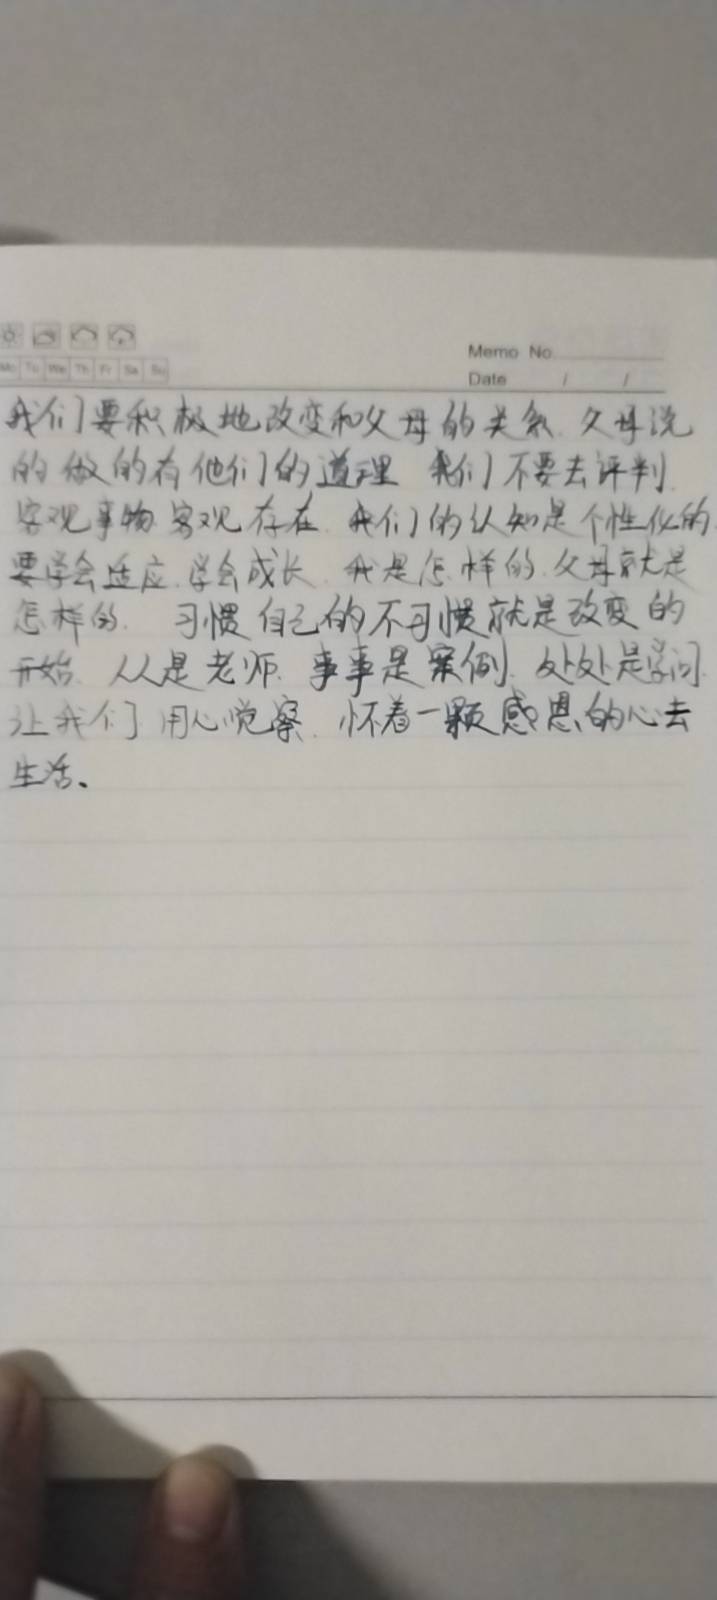 Memo No
Mo Tu We Th Fr Sa Su
Date / /
我们要积极地改变和父母的关系.父母说
的做的有他们的道理 我们不要去评判.
客观事物.客观存在.我们的认知是个性化的.
要学会适应.学会成长.我是怎样的.父母就是
怎样的. 习惯自己的不习惯就是改变的
开始.人人是老师.事事是案例.处处是学问.
让我们用心觉察.怀着一颗感恩的心去
生活、